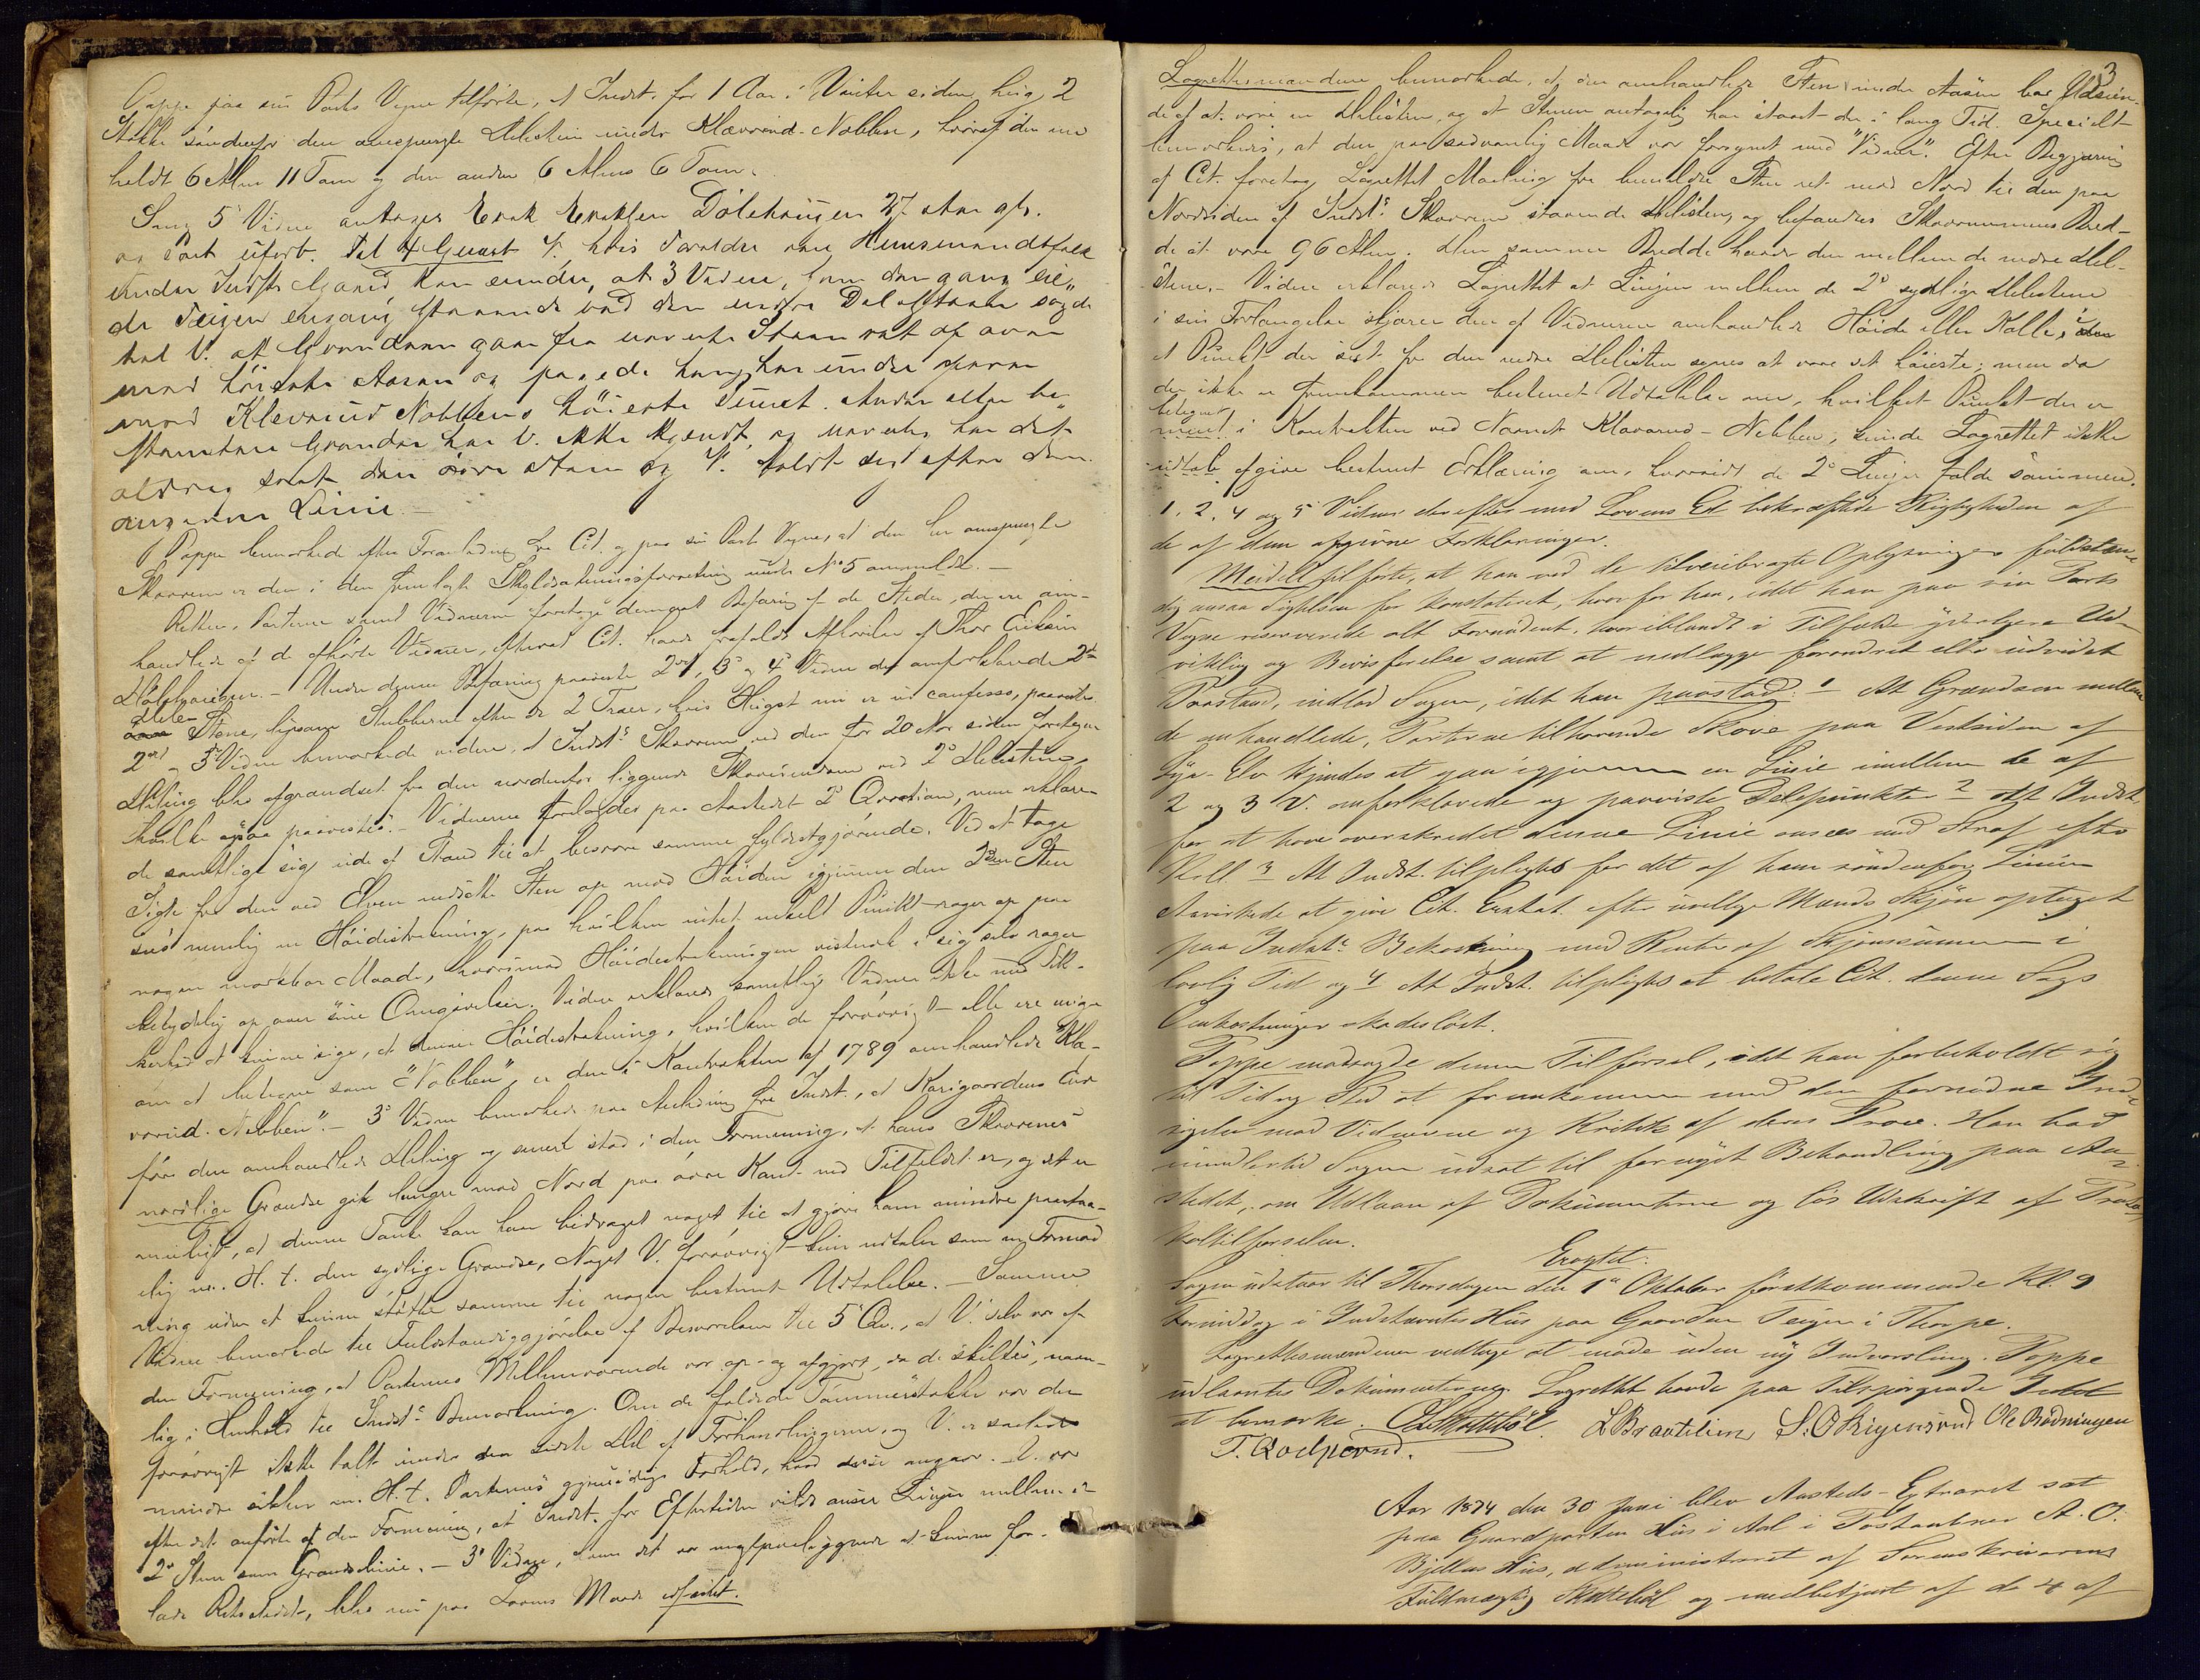 Poppe paa sin Parts Vegne tilførte, at Indst. for 1 Aar i Vinter siden hug 2
Stokke søndenfor den omspurgte Delesten under Klæverud-Nobben, hvoraf den ene
holdt 6 Alen 11 Tom og den anden 6 Alens 6 Tom.
Som 5 Vidne antages Erik Eriksen Dölehaugen 27 Aar gl.
under Indst. Gaard kan erindre, at 3 Vidne, som den gang eie„
de Teigen engang staaende ved den undre Delesten sagde
til V. at Grændsen gaar fra nævnte Steen ret op over
mod höieste Aasen og
mod Klevrud Nobbens höieste Punct. Anden eller be„
stemtere Grændse har V. ikke kjendt, og
aldrig seet den övre Steen og V. holdt sig efter den
angivne Linie. –
Poppe bemærkede efter Foranledning fra Cit. og paa sin Parts Vegne, at den her omspurgte
Skovrem er den i den fremlagte Skyldsætningsforretning under No 5 ommeldt. –
Retten, Parterne samt Vidnerne foretage dernæst Befaring af de Steder, der ere om-
handlede af de afhørte Vidner, efterat Cit. havde frafaldt Afhørelse af Thor Eriksen
Dölehaugen. – Under denne Befaring paaviste 2det, 3e og 4e Vidne de omforklarede 2de
Dele- Stene, ligesom Stubberne efter de 2 Træer, hvis Hugst nu er in confesso, paavistes.
2det og 3e Vidne bemærkede videre, at Indst.s Skovrem ved den for 20 Aar siden foretagne
Deling blev afgrændset fra den nordenfor liggende Skoveiendom ved 2de Delestene,
hvilke ogsaa paavistes. – Vidnerne forelagdes paa Aastedet 2de Qvæstion, men erklære-
de samtlige sig ude af Stand til at besvare samme fyldestgjørende. Ved at tage
Sigte fra den ved Elven nedsatte Sten op mod Høiden igjennem den 2den Sten
sees nemlig en Høidestrækning, paa hvilken intet enkelt Punkt rager op paa
nogen mærkbar Maade, hvorimod Høidestrækningen vistnok i sig selv rager
betydelig op over sine Omgivelser. Videre erklærede samtlige Vidner ikke med Sik-
kerhed at kunne sige, at denne Høidestrækning, hvilken de forøvrigt alle ere enige
om at betegne som "Nobben", er den i Kontrakten af 1789 omhandlede "Kla-
verud-Nebben". – 3e Vidne bemærkede paa Anledning fra Indst., at Karigaardens Eier
før den omhandlede Deling og senere stod i den Formening, at hans Skoverems
nordlige Grændse gik længre mod Nord paa øvre Kant end Tilfældet er, og det er
muligt, at denne Tanke kan have bidraget noget til at gjøre ham mindre paastaa-
elig m. H. t. den sydlige Grændse, Noget V. forøvrigt kun udtaler som en Formod-
ning uden at kunne støtte samme til nogen bestemt Udtalelse. – Samme
Vidne bemærkede til Fuldstændiggjørelse af Besvarelsen til 5e Qv., at V. selv var af
den Formening, at Parternes Mellemværende var op- og afgjort, da de skiltes, navn-
lig i Henhold til Indst.s Bemærkning. Om de fældede Tømmerstokke var der
forøvrigt ikke talt under den sidste Del af Forhandlingerne, og V. er saaledes
mindre sikker m. H. t. Parternes gjensidige Forhold, hvad disse angaar. – V. var
efter det anførte af den Formening, at Indst. for Eftertiden vilde anse Linjen mellem de
2de Stene som Grændselinie. – 3e Vidne, som det var magtpaaliggende at kunne for-
lade Retsstedet, blev nu paa Lovens Maade edfæstet.
3
Lagrettesmændene bemærkede, at den omhandlede Sten under Aasen har Udseen-
de af at være en Delesten, og at Stenen antagelig har staaet der i lang Tid. Specielt
bemærkedes, at den paa sædvanlig Maade var forsynet med "Vidner". Efter Begjæring
af Cit. foretog Lagrettet Maaling fra bemeldte Sten ret mod Nord til den paa
Nordsiden af Indst.s Skovrem staaende Delesten, og befandtes Skovremmens Bred-
de at være 96 Alen. Den samme Bredde havde den mellem de nedre Del-
stene. – Videre erklærede Lagrettet at Linjen mellem de 2de sydlige Delestene
i sin Forlængelse skjærer den af Vidnerne omhandlede Høide eller Kolle, i
et Punkt der seet fra den nedre Delesten synes at være det høieste; men da
der ikke er fremkommen bestemt Udtalelse om, hvilket Punkt der er
betegnet i Kontrakten ved Navnet Klaverud-Nebben, kunde Lagrettet ikke
afgive bestemt Erklæring om, hvorvidt de 2de Linjer falde sammen.
1, 2, 4 og 5 Vidner derefter med Lovens Ed bekræftede Rigtigheden af
de af dem afgivne Forklaringer.
Meidell tilførte, at han ved de tilveiebragte Oplysninger fuldstæn-
dig ansaa Sigtelsen for konstateret, hvorfor han, idet han paa sin Parts
Vegne reserverede alt Fornødent, hvoriblandt i Tilfælde yderligere Ud-
vikling og Bevisførelse samt at nedlægge forandret eller udvidet
Paastand, indlod Sagen, idet han paastod: 1 – At Grændsen mellem
de omhandlede, Parterne tilhørende Skove paa Vestsiden af
Lya-Elv kjendes at gaa igjennem en Linie imellem de af
2 og 3 V. omforklarede og paaviste Delepunkter 2 – At Indst.
for at have overskredet denne Linie ansees med Straf efter
3 – At Indst. tilpligtes for det af ham søndenfor Linien
Avirkede at give Cit. Erstat. efter uvillige Mænds Skjøn optaget
paa Indst.s Bekostning med Renter af Skjønssummen i
lovlig Tid og 4 At Indst. tilpligtes at betale Cit. denne Sags
Omkostninger skadesløst.
Poppe modsagde denne Tilførsel, idet han forbeholdt sig
til Tid og Sted at fremkomme med den fornødne Ind-
sigelse mod Vidnerne og Kritik af deres Prove. Han bad
imidlertid Sagen udsat til fornyet Behandling paa Aa-
stedet, om Udlaan af Dokumenterne og løs Udskrift af Proto-
koltilførselen.
Eragtet:
Sagen udstaar til Thorsdagen den 1e Oktober førstkommende Kl. 9
Formiddag i Indstævntes Hus paa Gaarden Teigen i Thorpe.
Lagrettesmændene vedtoge at møde uden ny Indvarsling. Poppe
udlaantes Dokumenterne. Lagrettet havde paa Tilspørgende Intet
at bemærke. L Brautelien Ole Rødningen
Aar 1874 den 30 Juni blev Aasteds-Extraret sat
paa Gaardparten Hus i Aal i Postaabner A. O.
Bjellas Hus, administreret af Sorenskriverens
Fuldmægtig Skattebøl og medbetjent af de 4 af